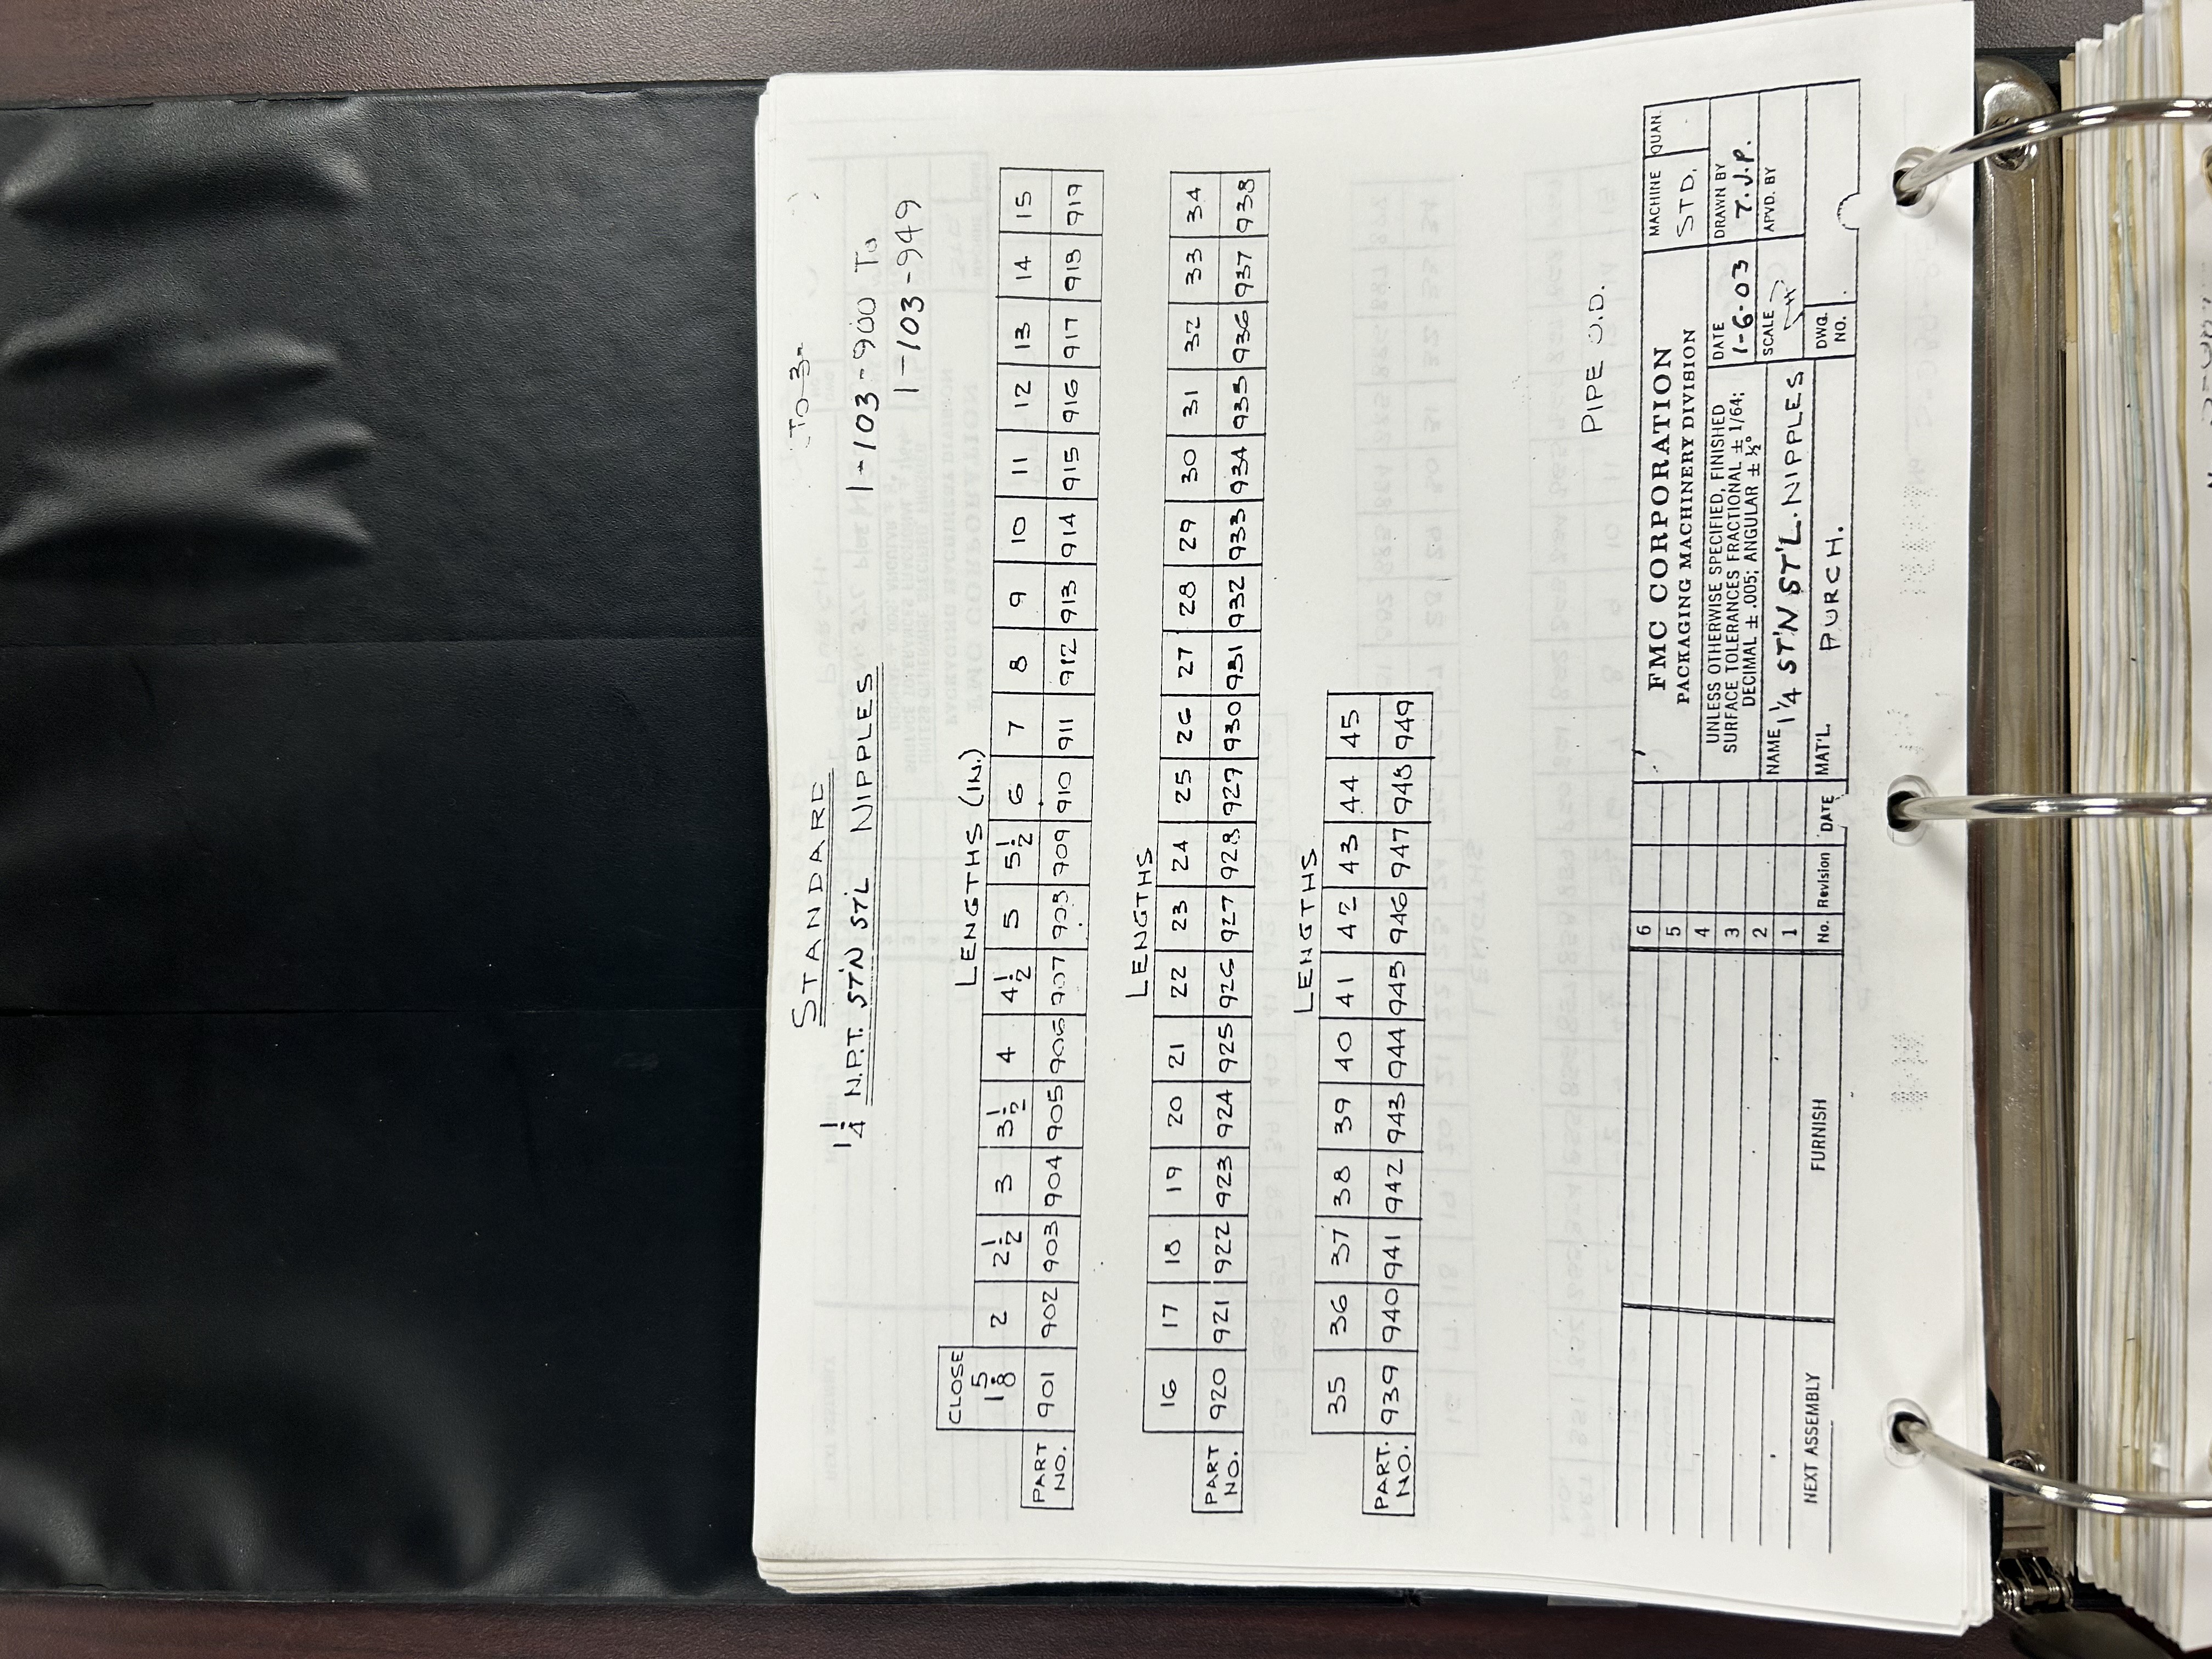 STANDARD
To 3
1 1/4 N.P.T. ST'N STL NIPPLES
1-103-900 To
1-103-949
LENGTHS (IN.)
CLOSE 1 5/8 2 2 1/2 3 3 1/2 4 4 1/2 5 5 1/2 6 7 8 9 10 11 12 13 14 15
PART NO. 901 902 903 904 905 906 907 908 909 910 911 912 913 914 915 916 917 918 919
LENGTHS
16 17 18 19 20 21 22 23 24 25 26 27 28 29 30 31 32 33 34
PART NO. 920 921 922 923 924 925 926 927 928 929 930 931 932 933 934 935 936 937 938
LENGTHS
35 36 37 38 39 40 41 42 43 44 45
PART. NO. 939 940 941 942 943 944 945 946 947 948 949
PIPE O.D.
NEXT ASSEMBLY
FURNISH
6
5
4
3
2
1
No. Revision DATE
FMC CORPORATION
PACKAGING MACHINERY DIVISION
UNLESS OTHERWISE SPECIFIED, FINISHED
SURFACE TOLERANCES FRACTIONAL ± 1/64;
DECIMAL ± .005; ANGULAR ± ½°
NAME 1¼ ST'N ST'L. NIPPLES
MAT'L. PURCH.
MACHINE
STD.
QUAN.
DATE
1-6-03
DRAWN BY
T.J.P.
SCALE
APVD. BY
DWG.
NO.